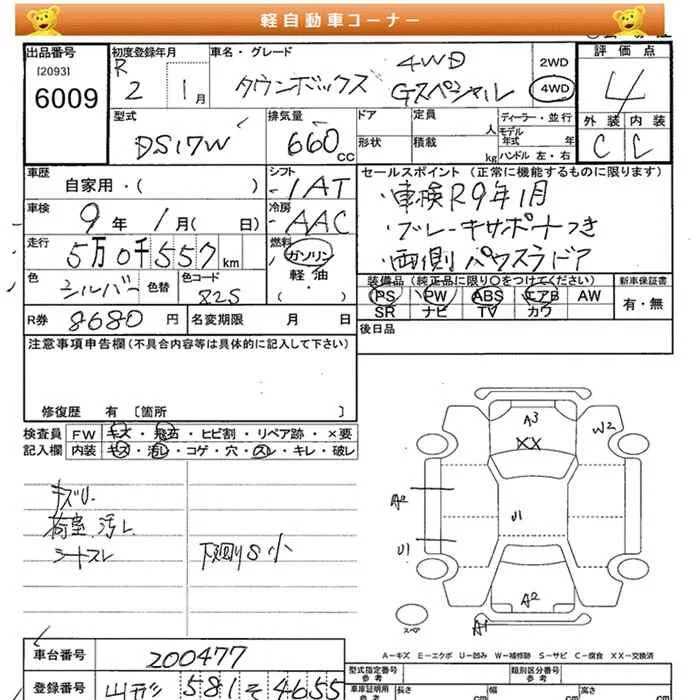 軽自動車コーナー
出品番号 初度登録年月 車名・グレード 評価点
[2093] R 4WD 2WD
6009 2 1月 タウンボックス Gスペシャル 4WD 4
型式 排気量 ドア 定員 人 ディーラー・並行 外装 内装
DS17W 660 CC 形状 積載 kg モデル年式 年 ハンドル 左・右 C C
車歴 シフト セールスポイント(正常に機能するものに限ります)
自家用・( ) IAT ・車検R9年1月
車検 9年1月( 日) 冷房 AAC ・ブレーキサポートつき
走行 5万0千557km 燃料 ガソリン ・両側パワスラドア
色 シルバー 色替 色コード 82S 軽油 ・( ) 装備品(純正品に限り○をつけてください) 新車保証書
PS PW ABS エアB AW 有・無
SR ナビ TV カワ
R券 8680円 名変期限 月 日 後日品
注意事項申告欄(不具合内容等は具体的に記入して下さい)
修復歴 有 〔箇所 〕
検査員 FW キズ・飛石・ヒビ割・リペア跡・×要
記入欄 内装 キズ・汚レ・コゲ・穴・スレ・キレ・破レ
A3
XX
W2
キズU
A2
荷室汚レ
U1
U1
シートスレ 下廻りS小
A2
A1
スペア
A-キズ E-エクボ U-凹み W-補修跡 S-サビ C-腐食 XX-交換済
車台番号 200477
型式指定番号 参考 類別区分番号 参考
登録番号 山形 581 そ 4655
車庫証明用 参考 長さ cm 幅 cm 高さ cm